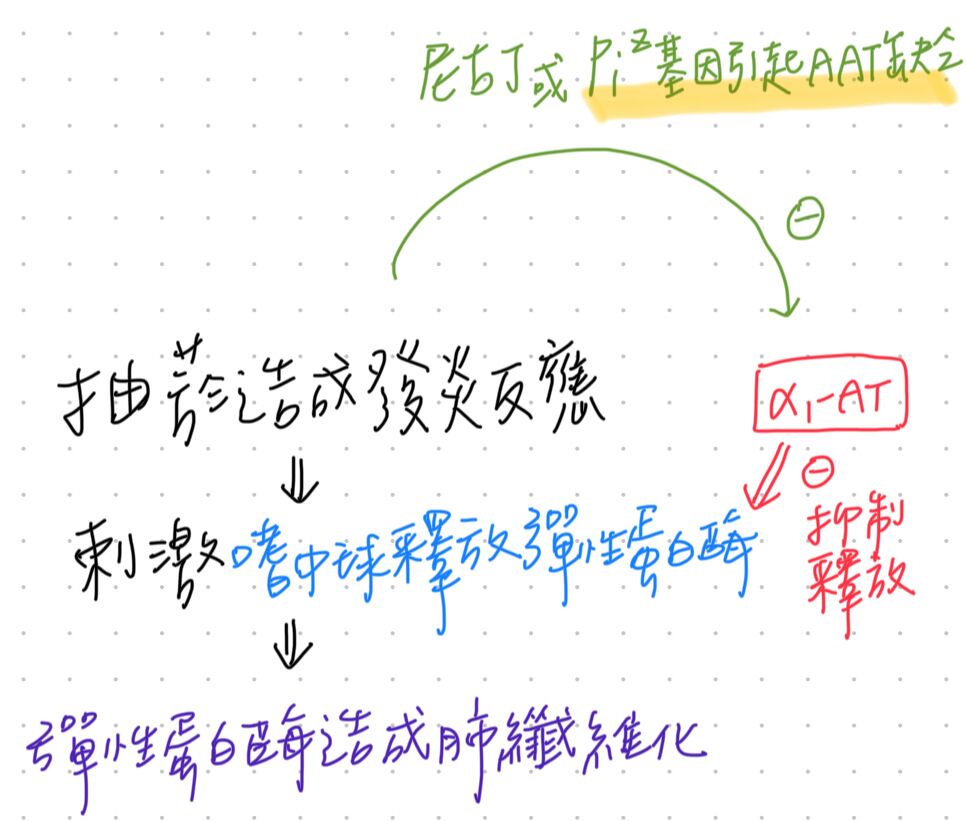 尼古丁或 Piᶻ基因引起AAT缺乏
⊖
抽菸造成發炎反應
α₁-AT
⊖
刺激嗜中球釋放彈性蛋白酶
抑制
釋放
彈性蛋白酶造成肺纖維化